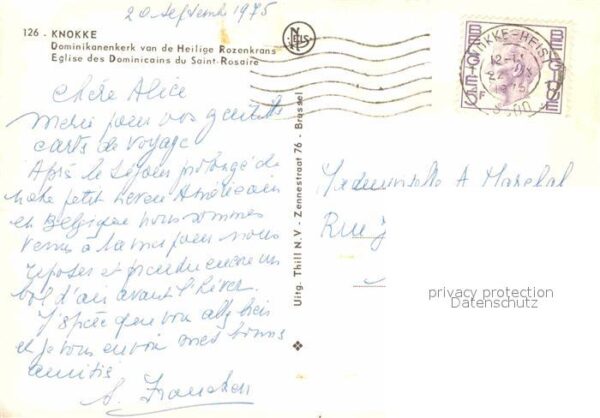 20 septembre 1975
126 - KNOKKE
Dominikanenkerk van de Heilige Rozenkrans
Eglise des Dominicains du Saint-Rosaire
NELS
Chère Alice
Merci pour vos gentilles
carts de voyage
Après le séjour prolongé de
notre petit neveu Américain
en Belgique nous sommes
venus à la mer pour nous
reposer et prendre encore un
bol d'air avant l'hiver.
J'espère que vous allez bien
et je vous envoie mes bonnes
amitiés
Uitg. Thill N.V - Zennestraat 76 - Brussel
KNOKKE-HEIST
12-11
22
1975
F
BELGIQUE
BELGIE
Mademoiselle A Marechal
Rue J
privacy protection
Datenschutz